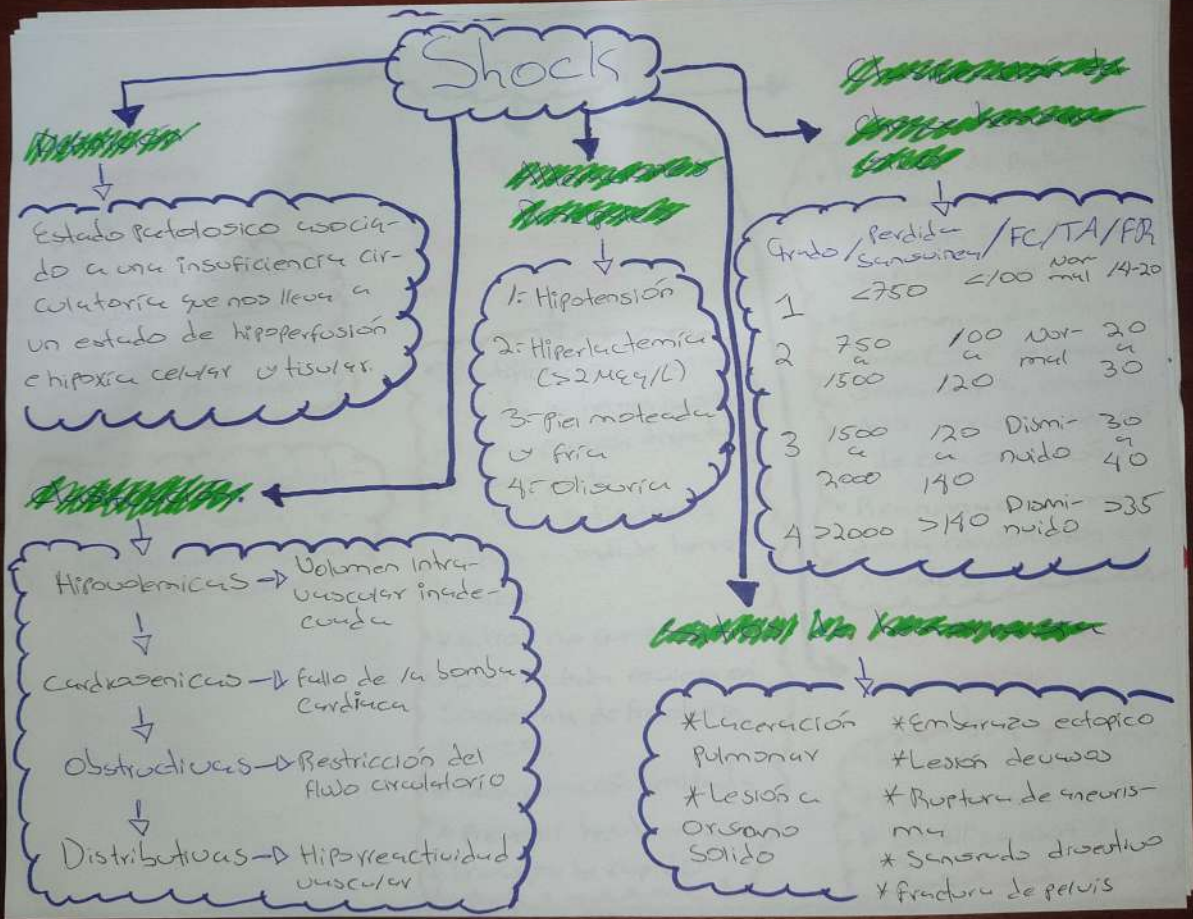 Shock
Estado patologico asocia-
do a una insuficiencia cir-
culatoria que nos lleva a
un estado de hipoperfusión
e hipoxia celular y tisular.
1.- Hipotensión
2.- Hiperlactemia
(>2 MEq/L)
3.- piel moteada
y fría
4.- Oliguria
Grado / Perdida sanguinea / FC / TA / FR
1 <750 <100 Nor-mal 14-20
2 750 a 1500 100 a 120 Nor-mal 20 a 30
3 1500 a 2000 120 a 140 Dismi-nuido 30 a 40
4 >2000 >140 Dismi-nuido >35
Hipovolemicas → Volumen intra-
vascular inade-
cuada
Cardiogenicas → fallo de la bomba
Cardiaca
Obstructivas → Restricción del
flujo circulatorio
Distributivas → Hiporreactividad
vascular
*Laceración
pulmonar
*Lesión a
organo
solido
*Embarazo ectopico
*Lesión de vasos
*Ruptura de aneuris-
ma
*Sangrado digestivo
*fractura de pelvis